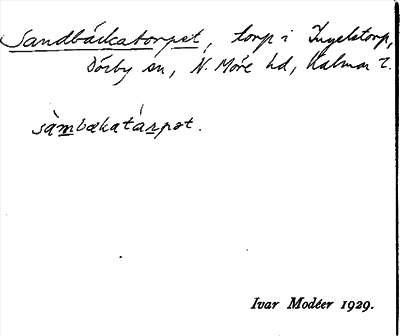 Sandbäckatorpet, torp i Ingelstorp,
Dörby sn, N. Möre hd, Kalmar l.
sàmbækatárpət.
Ivar Modéer 1929.